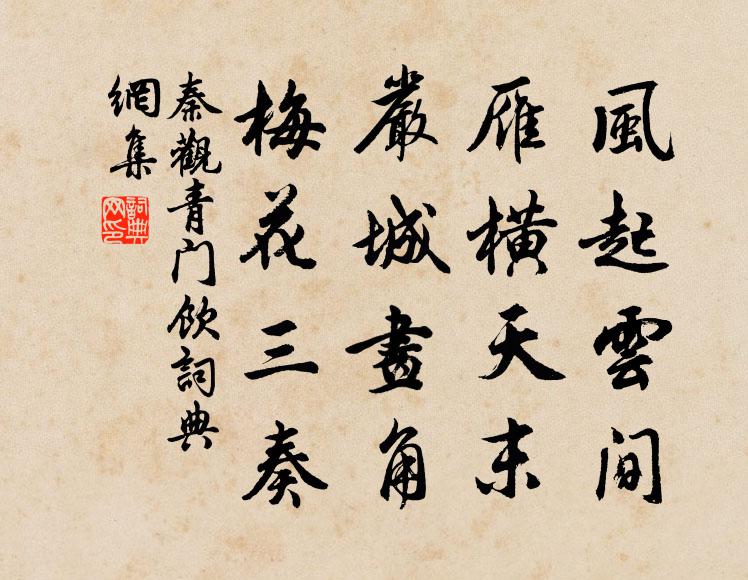 風起雲間
雁橫天末
嚴城畫角
梅花三奏
秦觀青门飲詞典
網集
詞典
网印